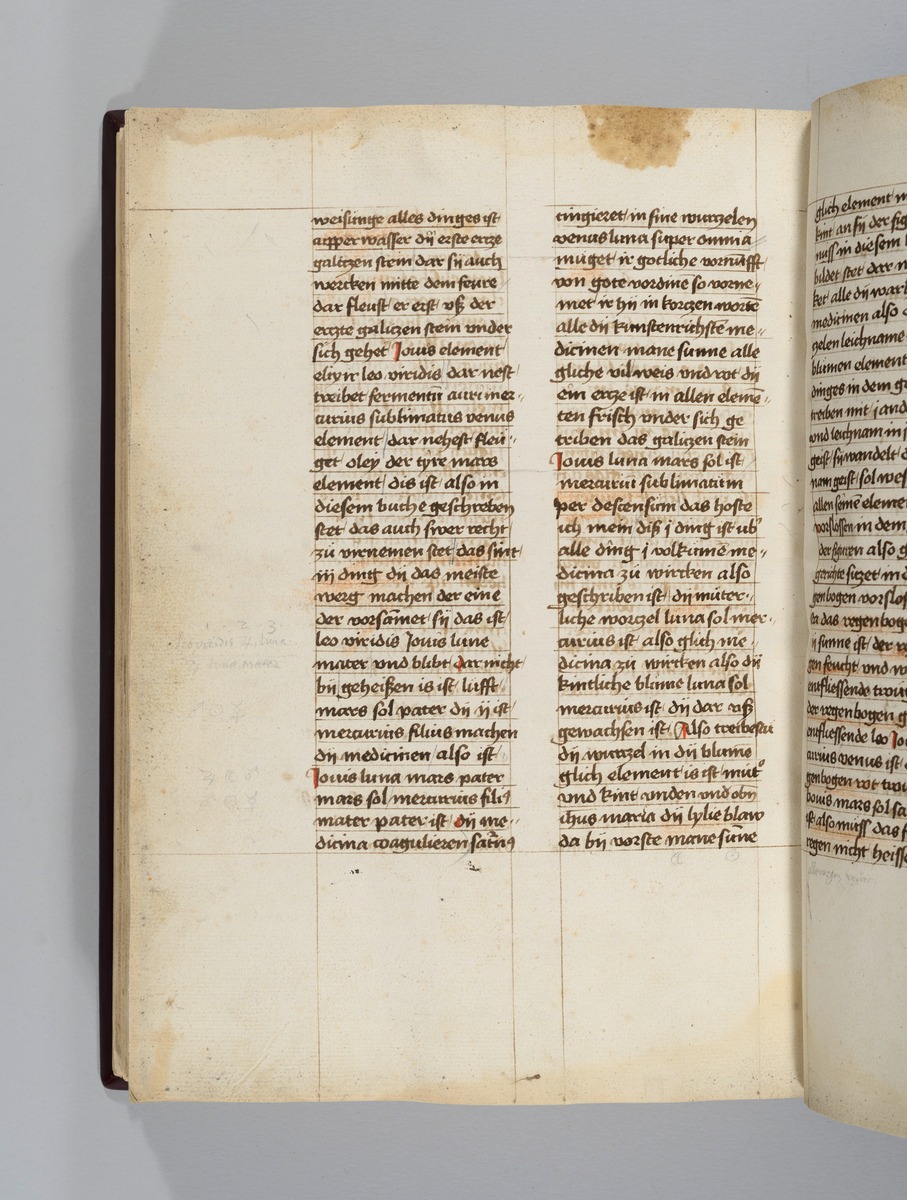 weisunge alles dinges ist
upper wasser dij erste ercze
galitzen stein dar sij auch
wercken mitte dem feure
dar fleust er erst uß der
erczte galiczen stein under
sich gehet Jovis element
elixir leo viridis dar nest
treibet fermentū auri mer-
curius sublimatus venus
element dar nehest fleu-
get oley der tyre mars
element dis ist also in
diesem buche geschreben
stet das auch swer recht
zü virnemen stet das sint
iij ding dij das meiste
werg machen der eine
der vorsāmet sij das ist
leo viridis Jovis lune
mater vnd blibt dar nicht
bij geheißen is ist lufft
mars sol pater dij ij ist
mercurius filius machen
dij medicinen also ist
Jovis luna mars pater
mars sol mercurius filiꝰ
mater pater ist dij me-
dicina coagulieren satūnꝰ
tingieret in sine wurczelen
venus luna super omnia
muget ir gotliche vornūfft
von gote vordine so vorne-
met ir hij in korczen wortē
alle dij kunstenrichstē me-
dicinen mane sunne alle
gliche vil weis vnd rot dij
ein ercze ist in allen elemē-
ten frisch vnder sich ge
triben das galiczen stein
Jovis luna mars sol ist
mercurii sublimatum
per descensum das hoste
ich mein diß j ding ist ub'
alle ding j volkumē me-
dicina zü wircken also
geschriben ist dij müter-
liche worczel luna sol mer-
curius ist also glich me-
dicina zü wircken also dij
kintliche blume luna sol
mercurius ist dij dar uß
gewachsen ist Also treibestu
dij wurczel in dij blume
glich element is ist mut'
vnd kint vnden vnd obn
ihus maria dij lylie blaw
da bij vorste mane sunne
glich element
kint an sij der
muss in diesem
bildet stet dar
ket alle dij
medicinen also
czelen leichname
blumen element
dinges in dem
treiben mit j
vnd leichnam in
geist sij wandelt
nam geist sol
allen seinē
vorslossen in dem
der figuren also
gerichte siczet in
genbogen
das regenboge
ij sunne ist der
gen feucht vnd
entfliessende
der regenbogen
entfliessende leo
curius venus ist
genbogen rot
Jovis mars sol
ist also muss das
regen nicht